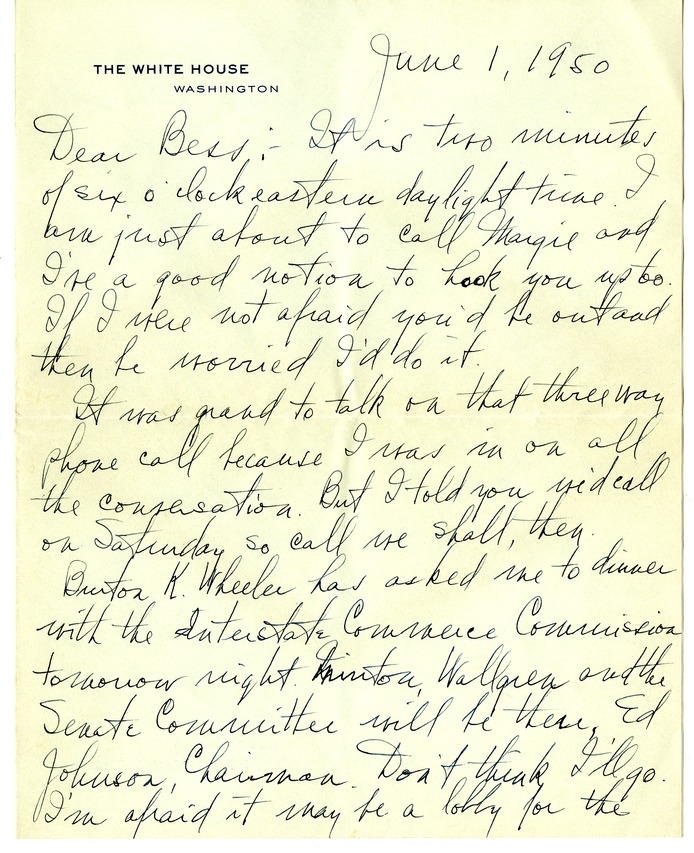 THE WHITE HOUSE
WASHINGTON
June 1, 1950
Dear Bess:- It is two minutes
of six o'clock eastern daylight time. I
am just about to call Margie and
I've a good notion to hook you up too.
If I were not afraid you'd be out and
then be worried I'd do it.
It was grand to talk on that three way
phone call because I was in on all
the conversation. But I told you we'd call
on Saturday so call we shall, then.
Burton K. Wheeler has asked me to dinner
with the Interstate Commerce Commission
tomorrow night. Minton, Wallgren and the
Senate Committee will be there, Ed
Johnson, Chairman. Don't think I'll go.
I'm afraid it may be a lobby for the